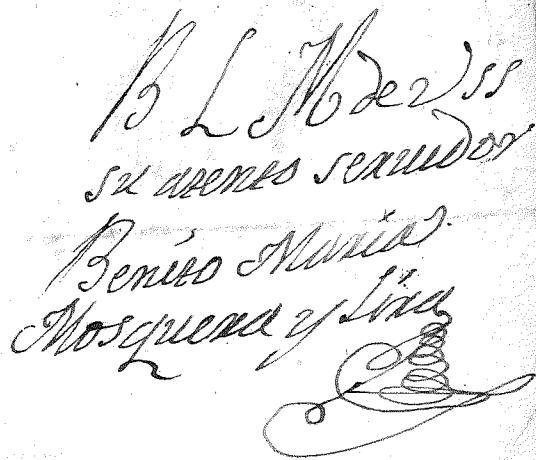 B L M de V SS
su atento servidor
Benito Maria
Mosquera y Lira